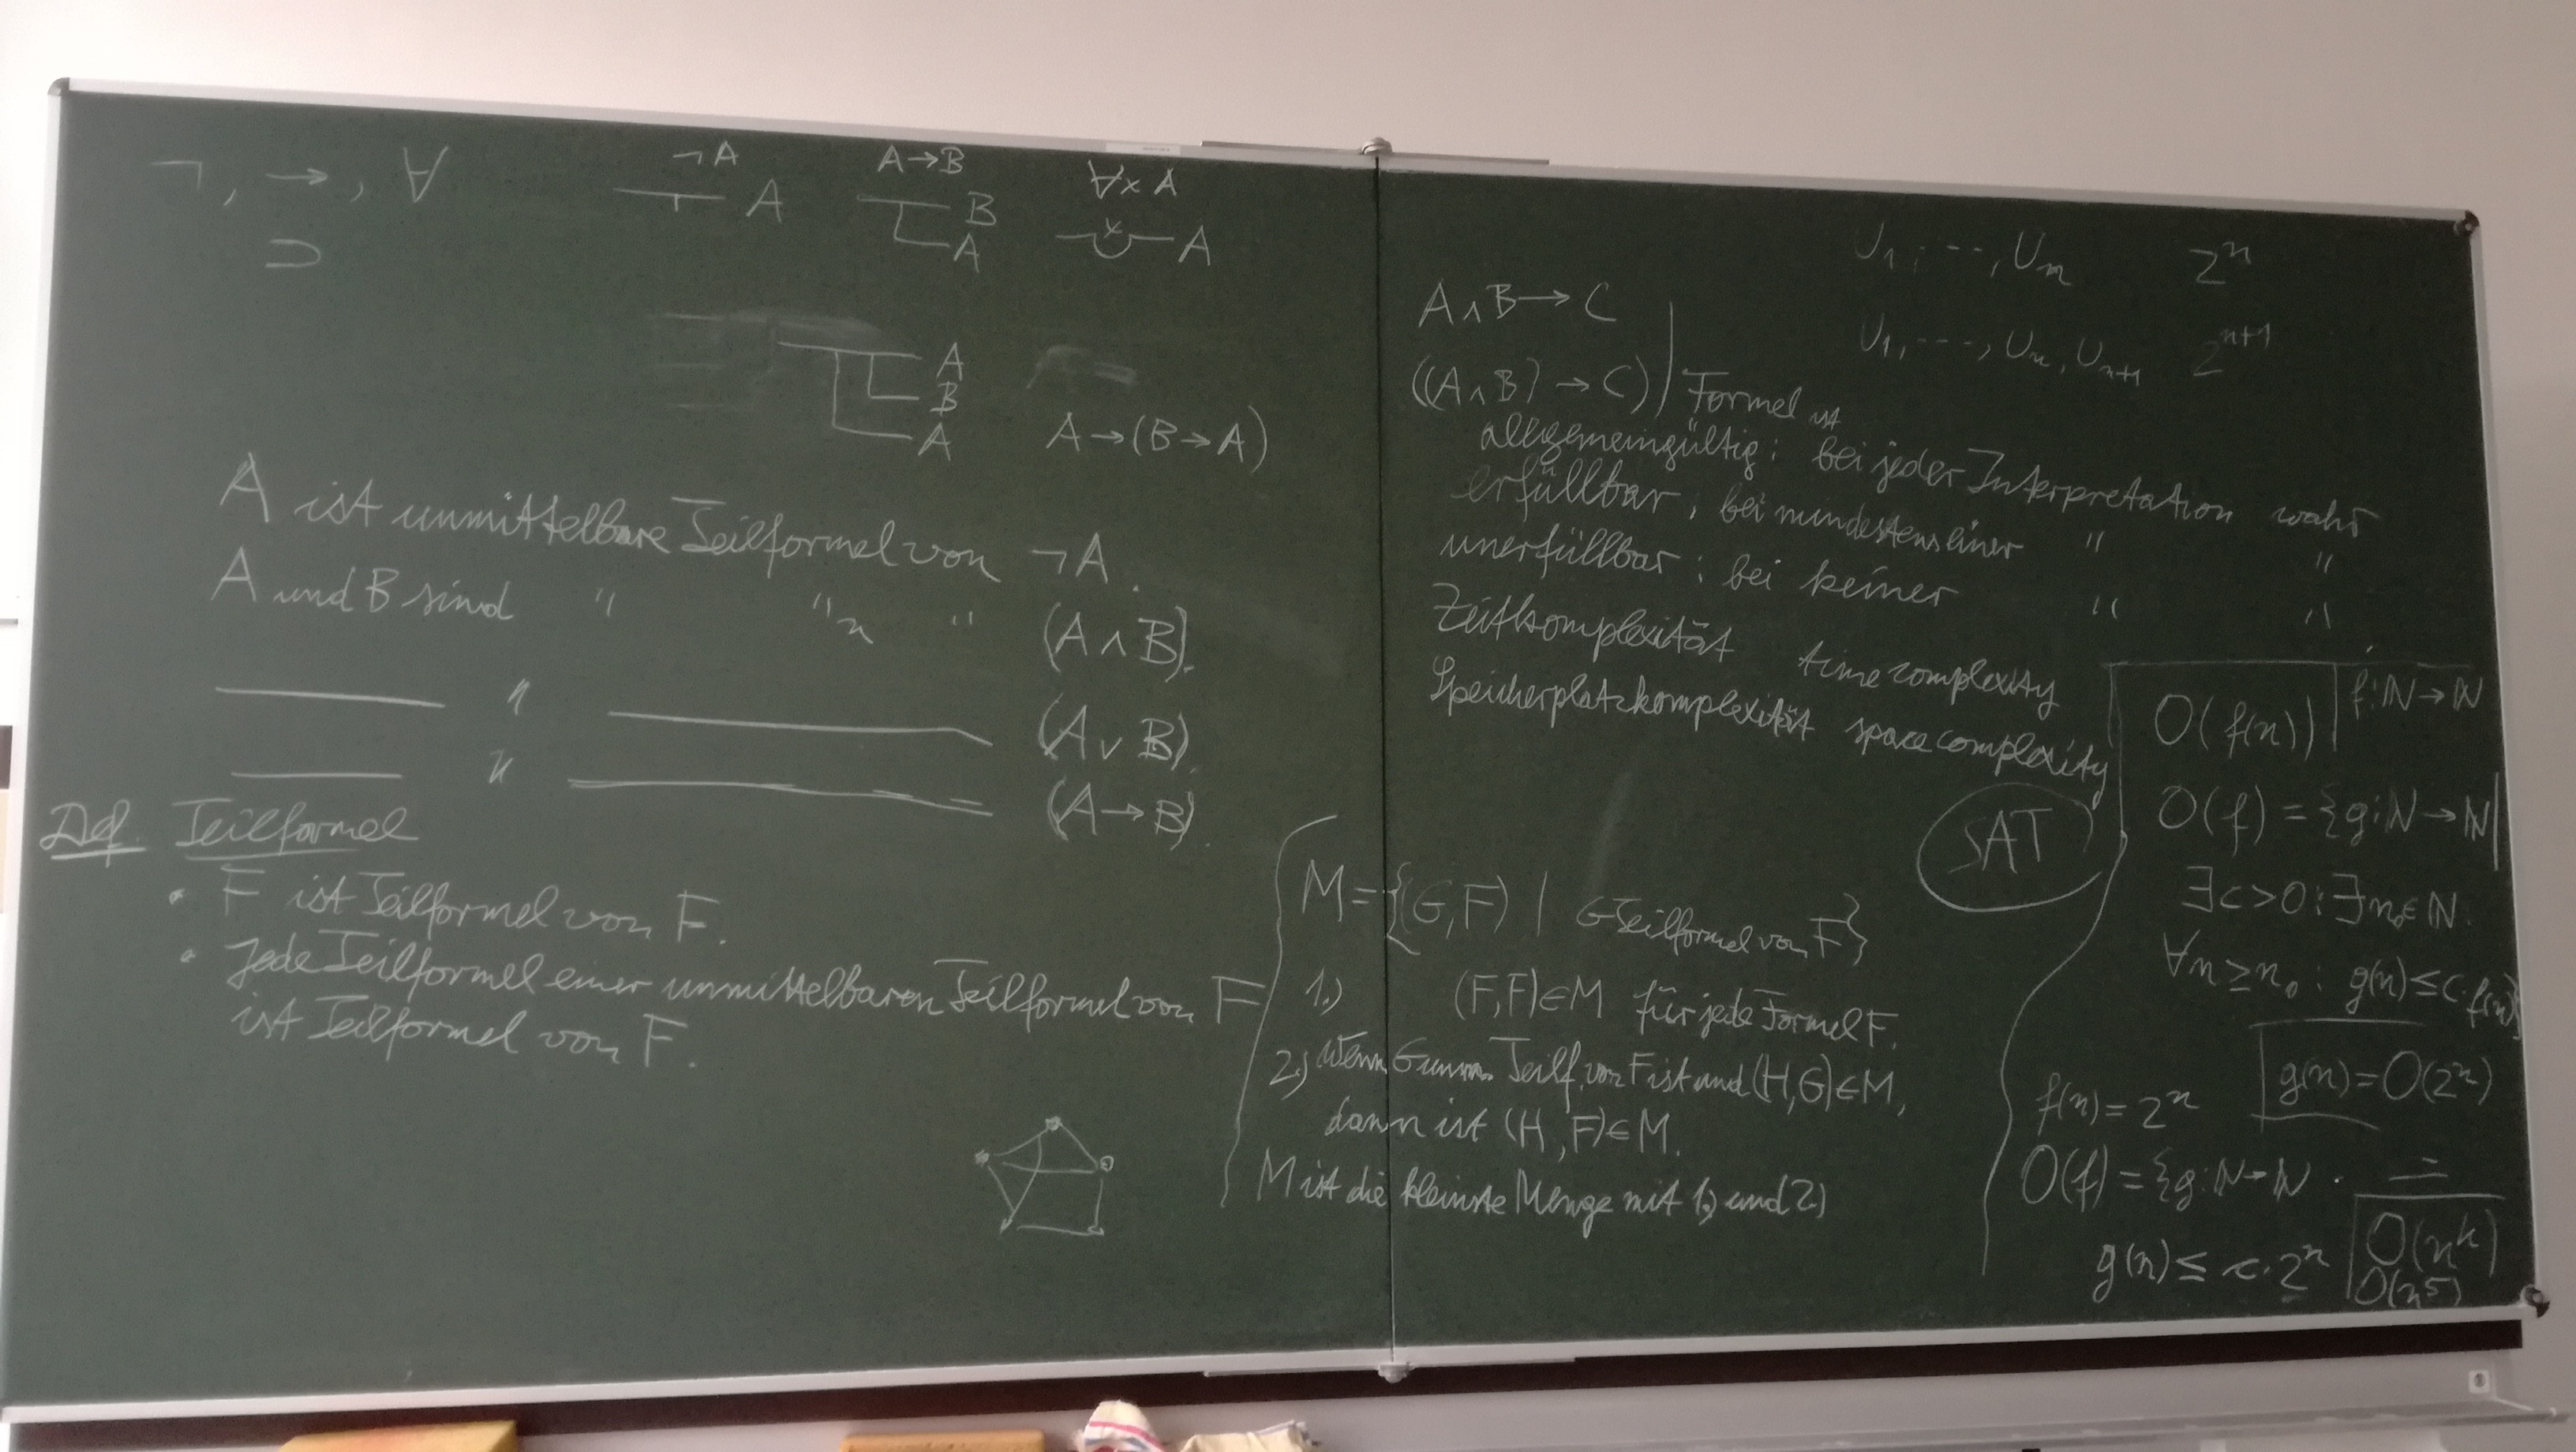 ¬, →, ∀
⊃
¬A
A
A→B
B
A
∀x A
x
A
A
B
A
A→(B→A)
A ist unmittelbare Teilformel von ¬A.
A und B sind " "n " (A∧B).
" (A∨B).
" (A→B).
Def. Teilformel
• F ist Teilformel von F.
• Jede Teilformel einer unmittelbaren Teilformel von F
ist Teilformel von F.
A∧B→C
((A∧B)→C)
U₁,---,Uₙ 2ⁿ
U₁,---,Uₙ,Uₙ₊₁ 2ⁿ⁺¹
Formel ist
allgemeingültig: bei jeder Interpretation wahr
erfüllbar: bei mindestens einer " "
unerfüllbar: bei keiner " "
Zeitkomplexität time complexity
Speicherplatzkomplexität space complexity
SAT
M={(G,F) | G Teilformel von F}
1.) (F,F)∈M für jede Formel F.
2.) Wenn G unm. Teilf. von F ist und (H,G)∈M,
dann ist (H,F)∈M.
M ist die kleinste Menge mit 1.) und 2.)
O(f(n)) f:ℕ→ℕ
O(f)={g:ℕ→ℕ|
∃c>0:∃n₀∈ℕ:
∀n≥n₀: g(n)≤c·f(n)}
g(n)=O(2ⁿ)
f(n)=2ⁿ
O(f)={g:ℕ→ℕ
g(n)≤c·2ⁿ
O(nᵏ)
O(n⁵)